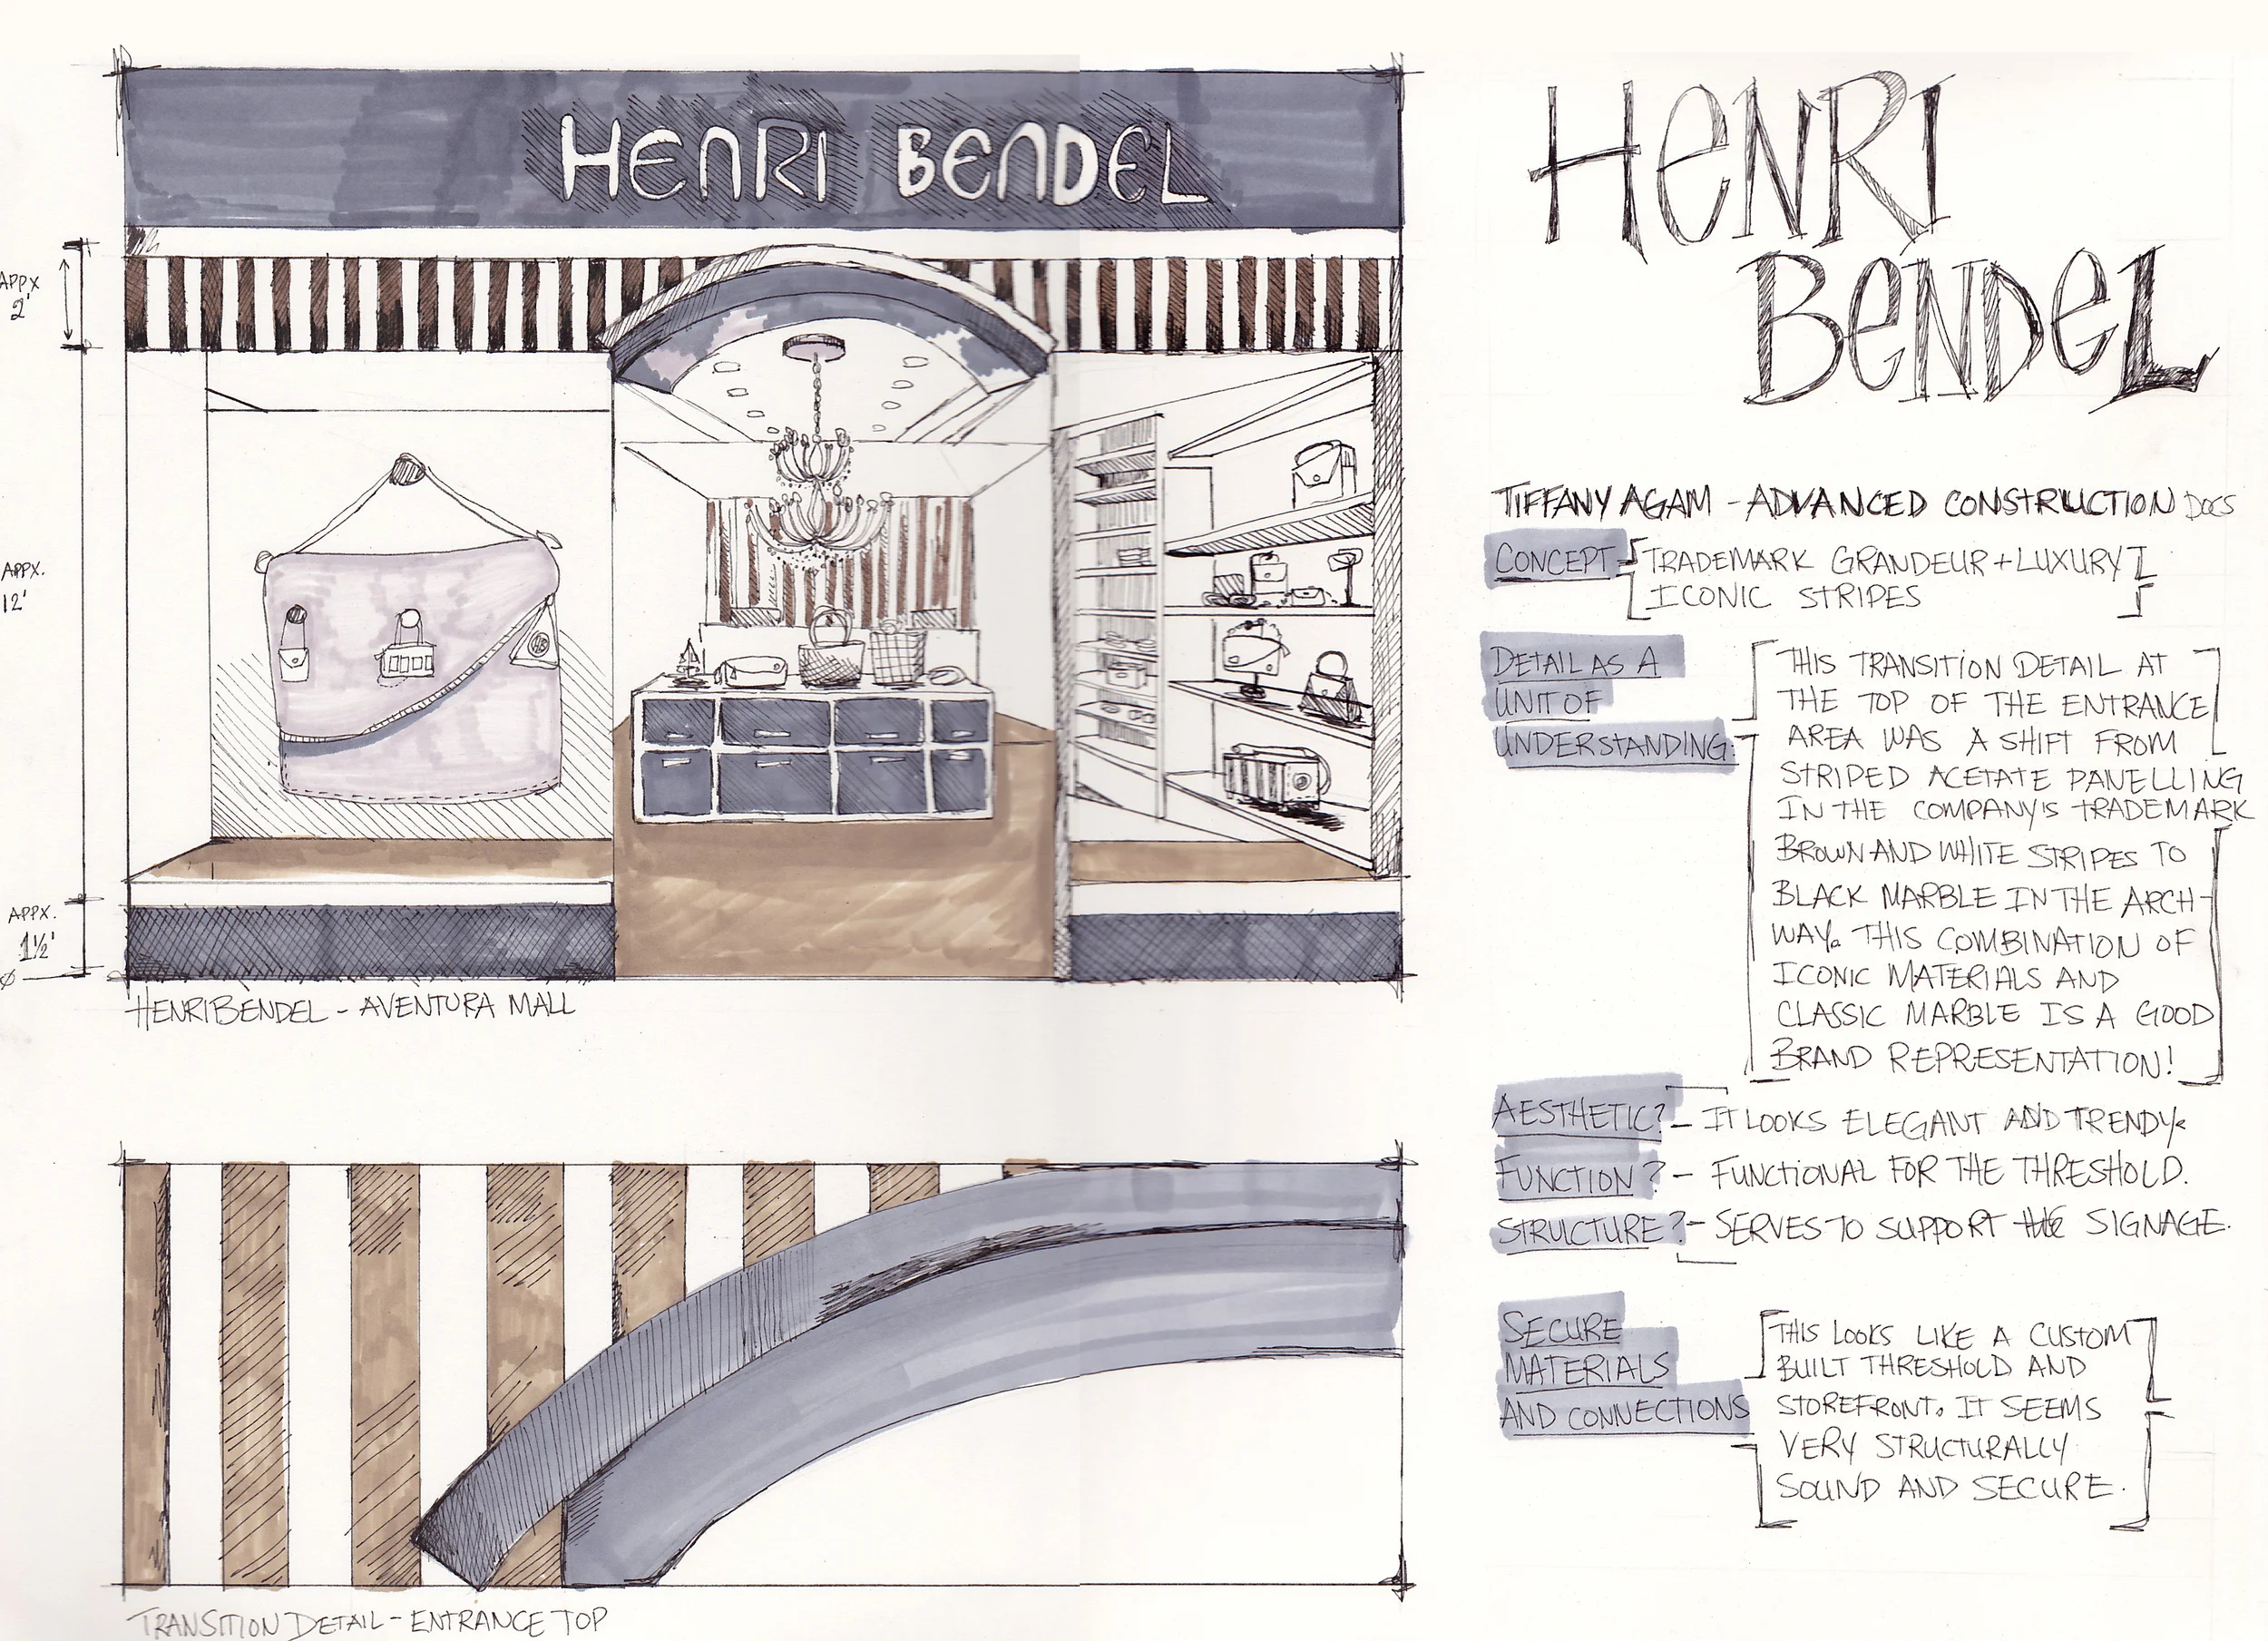 HENRI BENDEL
APPX
2'
APPX.
12'
APPX.
1½'
HENRI BENDEL - AVENTURA MALL
TRANSITION DETAIL - ENTRANCE TOP
HENRI
BENDEL
TIFFANY AGAM - ADVANCED CONSTRUCTION DOCS
CONCEPT - TRADEMARK GRANDEUR + LUXURY
ICONIC STRIPES
DETAIL AS A
UNIT OF
UNDERSTANDING:
THIS TRANSITION DETAIL AT
THE TOP OF THE ENTRANCE
AREA WAS A SHIFT FROM
STRIPED ACETATE PANELLING
IN THE COMPANY'S TRADEMARK
BROWN AND WHITE STRIPES TO
BLACK MARBLE IN THE ARCH-
WAY. THIS COMBINATION OF
ICONIC MATERIALS AND
CLASSIC MARBLE IS A GOOD
BRAND REPRESENTATION!
AESTHETIC? - IT LOOKS ELEGANT AND TRENDY.
FUNCTION? - FUNCTIONAL FOR THE THRESHOLD.
STRUCTURE? - SERVES TO SUPPORT THE SIGNAGE.
SECURE
MATERIALS
AND CONNECTIONS
THIS LOOKS LIKE A CUSTOM
BUILT THRESHOLD AND
STOREFRONT. IT SEEMS
VERY STRUCTURALLY
SOUND AND SECURE.